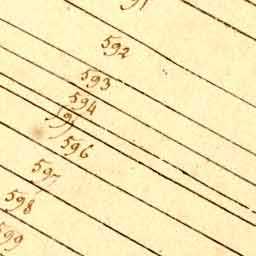 591
592
593
594
595
596
597
598
599